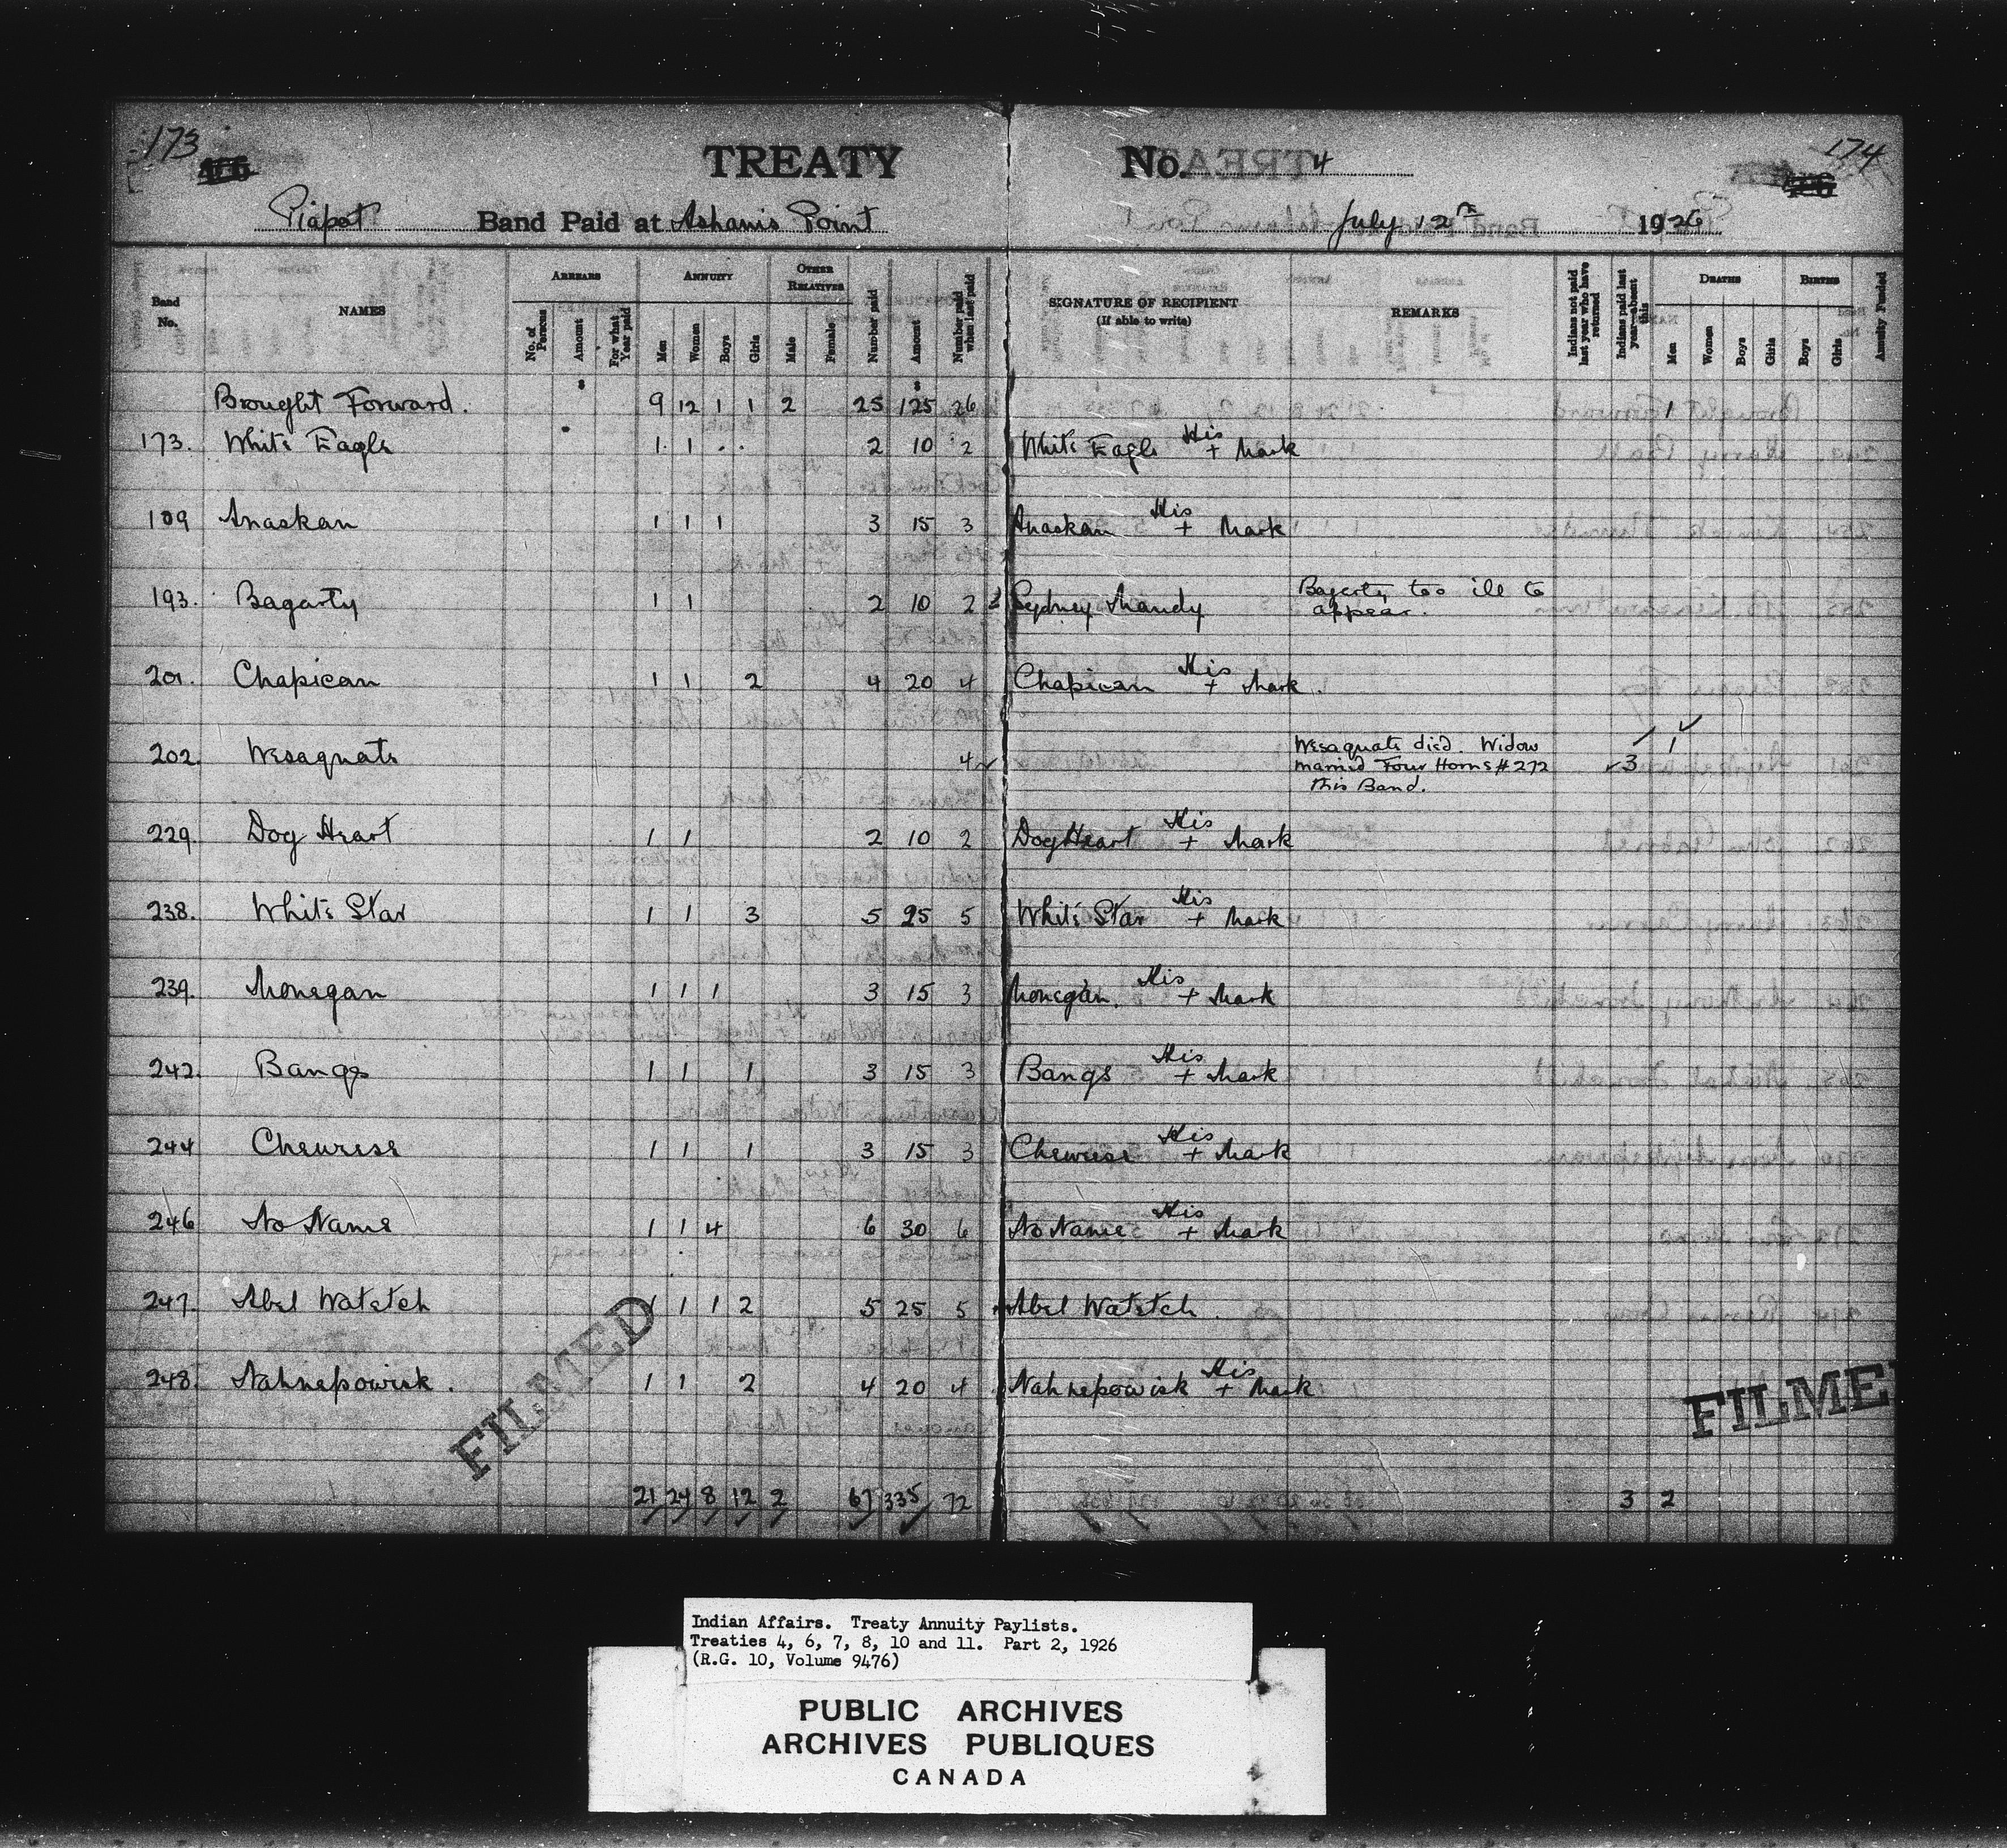 173
174
TREATY No. 4
Piapot Band Paid at Ashamis Point July 12th 1926
Band No. NAMES ARREARS ANNUITY OTHER RELATIVES Number paid Amount Number paid when last paid SIGNATURE OF RECIPIENT (If able to write) REMARKS Indians not paid last year who have returned Indians paid last year—absent this DEATHS BIRTHS Annuity Funded
No. of Persons Amount For what Year paid Men Women Boys Girls Male Female Men Women Boys Girls Boys Girls
Brought Forward. 9 12 1 1 2 25 125 26 1
173. White Eagle 1 1 2 10 2 White Eagle His + Mark
109 Anaskan 1 1 1 3 15 3 Anaskan His + Mark
193. Bagarty 1 1 2 10 2 Sydney Mandy Bagerty too ill to
appear.
201. Chapican 1 1 2 4 20 4 Chapican His + Mark.
202. Wesaquate 4 Wesaquate died. Widow 3 1
married Four Horns #272
this Band.
229. Dog Heart 1 1 2 10 2 Dog Heart His + Mark
238. White Star 1 1 3 5 25 5 White Star His + Mark
239. Monegan 1 1 1 3 15 3 Monegan. His + Mark
242. Bangs 1 1 1 3 15 3 Bangs His + Mark
244 Chewese 1 1 1 3 15 3 Chewese His + Mark
246 No Name 1 1 4 6 30 6 No Name His + Mark
247. Abel Watetch 1 1 1 2 5 25 5 Abel Watetch.
248. Nahnepowisk. 1 1 2 4 20 4 Nahnepowisk His + Mark
FILMED
FILME
21 24 8 12 2 67 335 72 3 2
Indian Affairs. Treaty Annuity Paylists.
Treaties 4, 6, 7, 8, 10 and 11. Part 2, 1926
(R.G. 10, Volume 9476)
PUBLIC ARCHIVES
ARCHIVES PUBLIQUES
CANADA